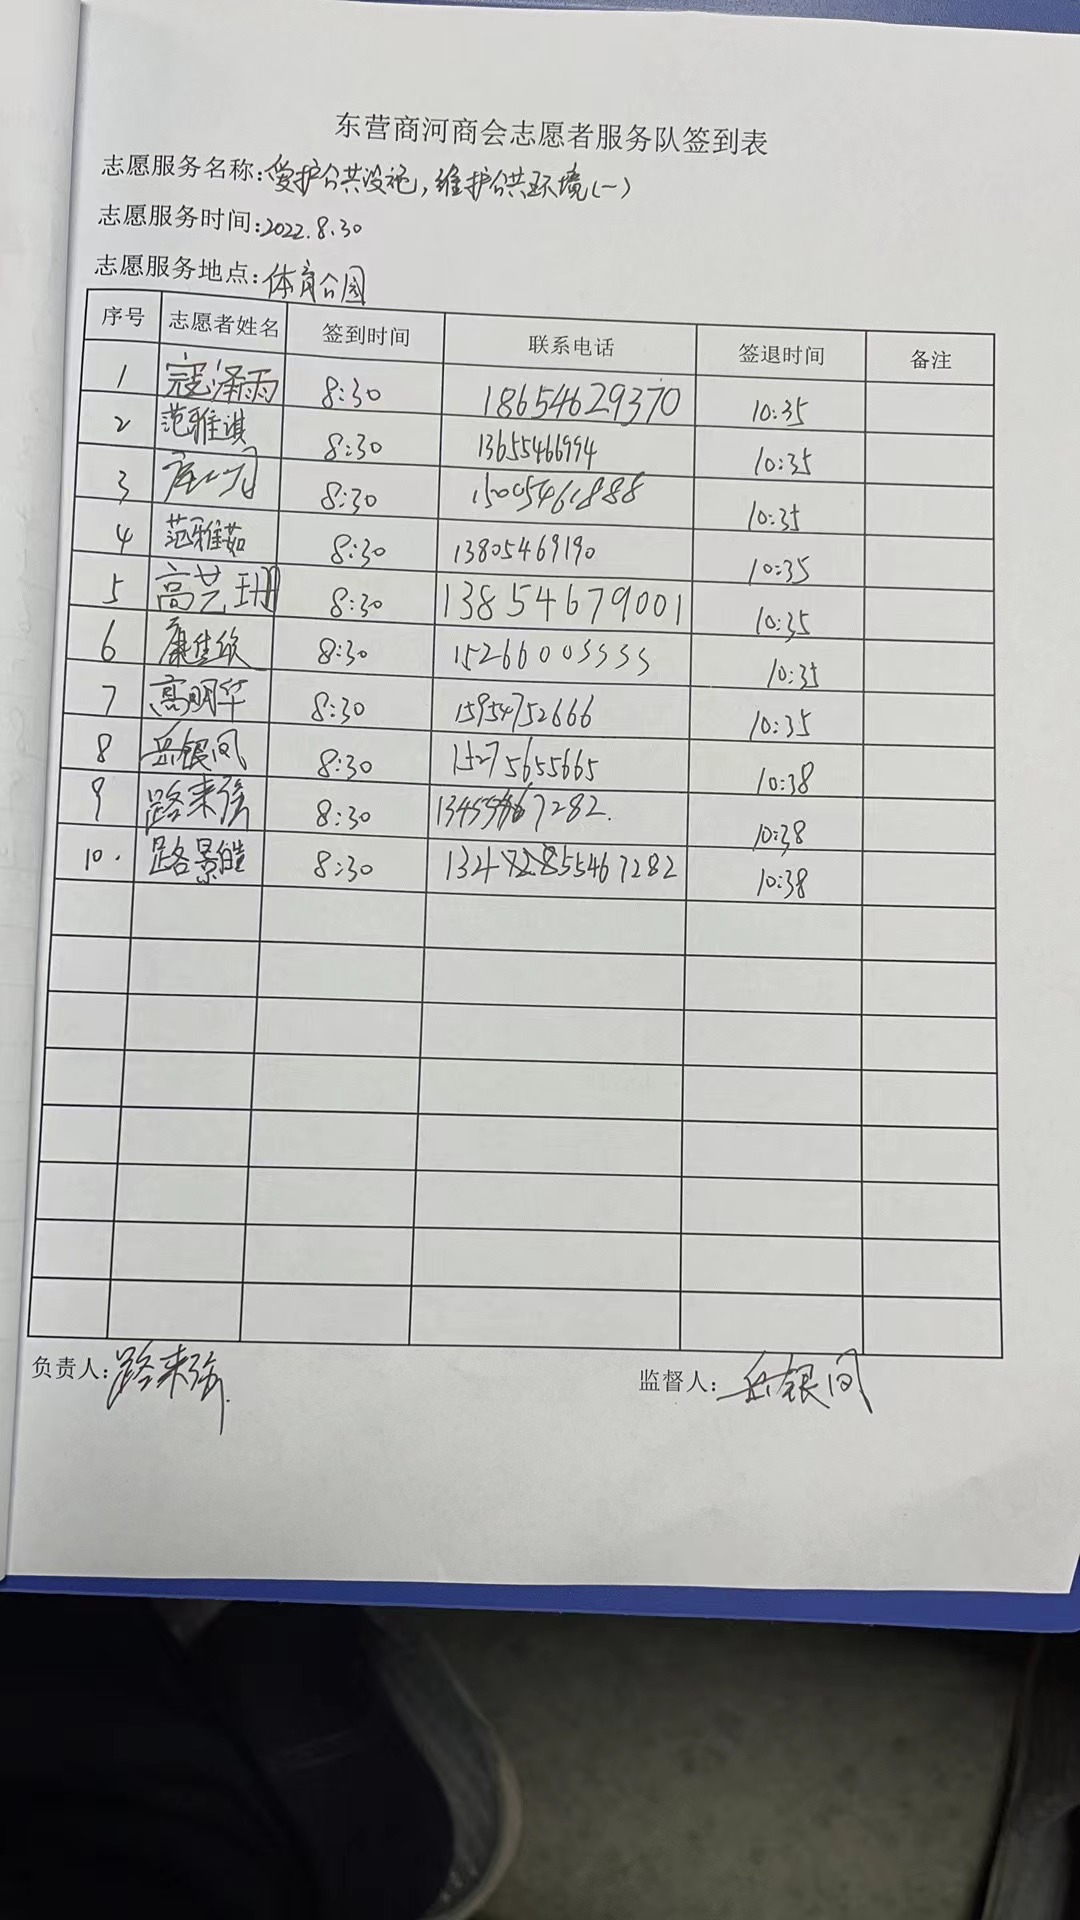 东营商河商会志愿者服务队签到表
志愿服务名称:爱护公共设施,维护公共环境(一)
志愿服务时间:2022.8.30
志愿服务地点:体育公园
序号 志愿者姓名 签到时间 联系电话 签退时间 备注
1 寇泽雨 8:30 18654629370 10:35
2 范雅淇 8:30 13655466994 10:35
3 8:30 15005461888 10:35
4 范雅茹 8:30 13805469190 10:35
5 高艺珊 8:30 13854679001 10:35
6 康佳欣 8:30 15266005555 10:35
7 高明华 8:30 15954752666 10:35
8 岳银凤 8:30 15275655665 10:38
9 路来强 8:30 10:38
10. 路景皓 8:30 10:38
负责人:路来强 监督人:岳银凤